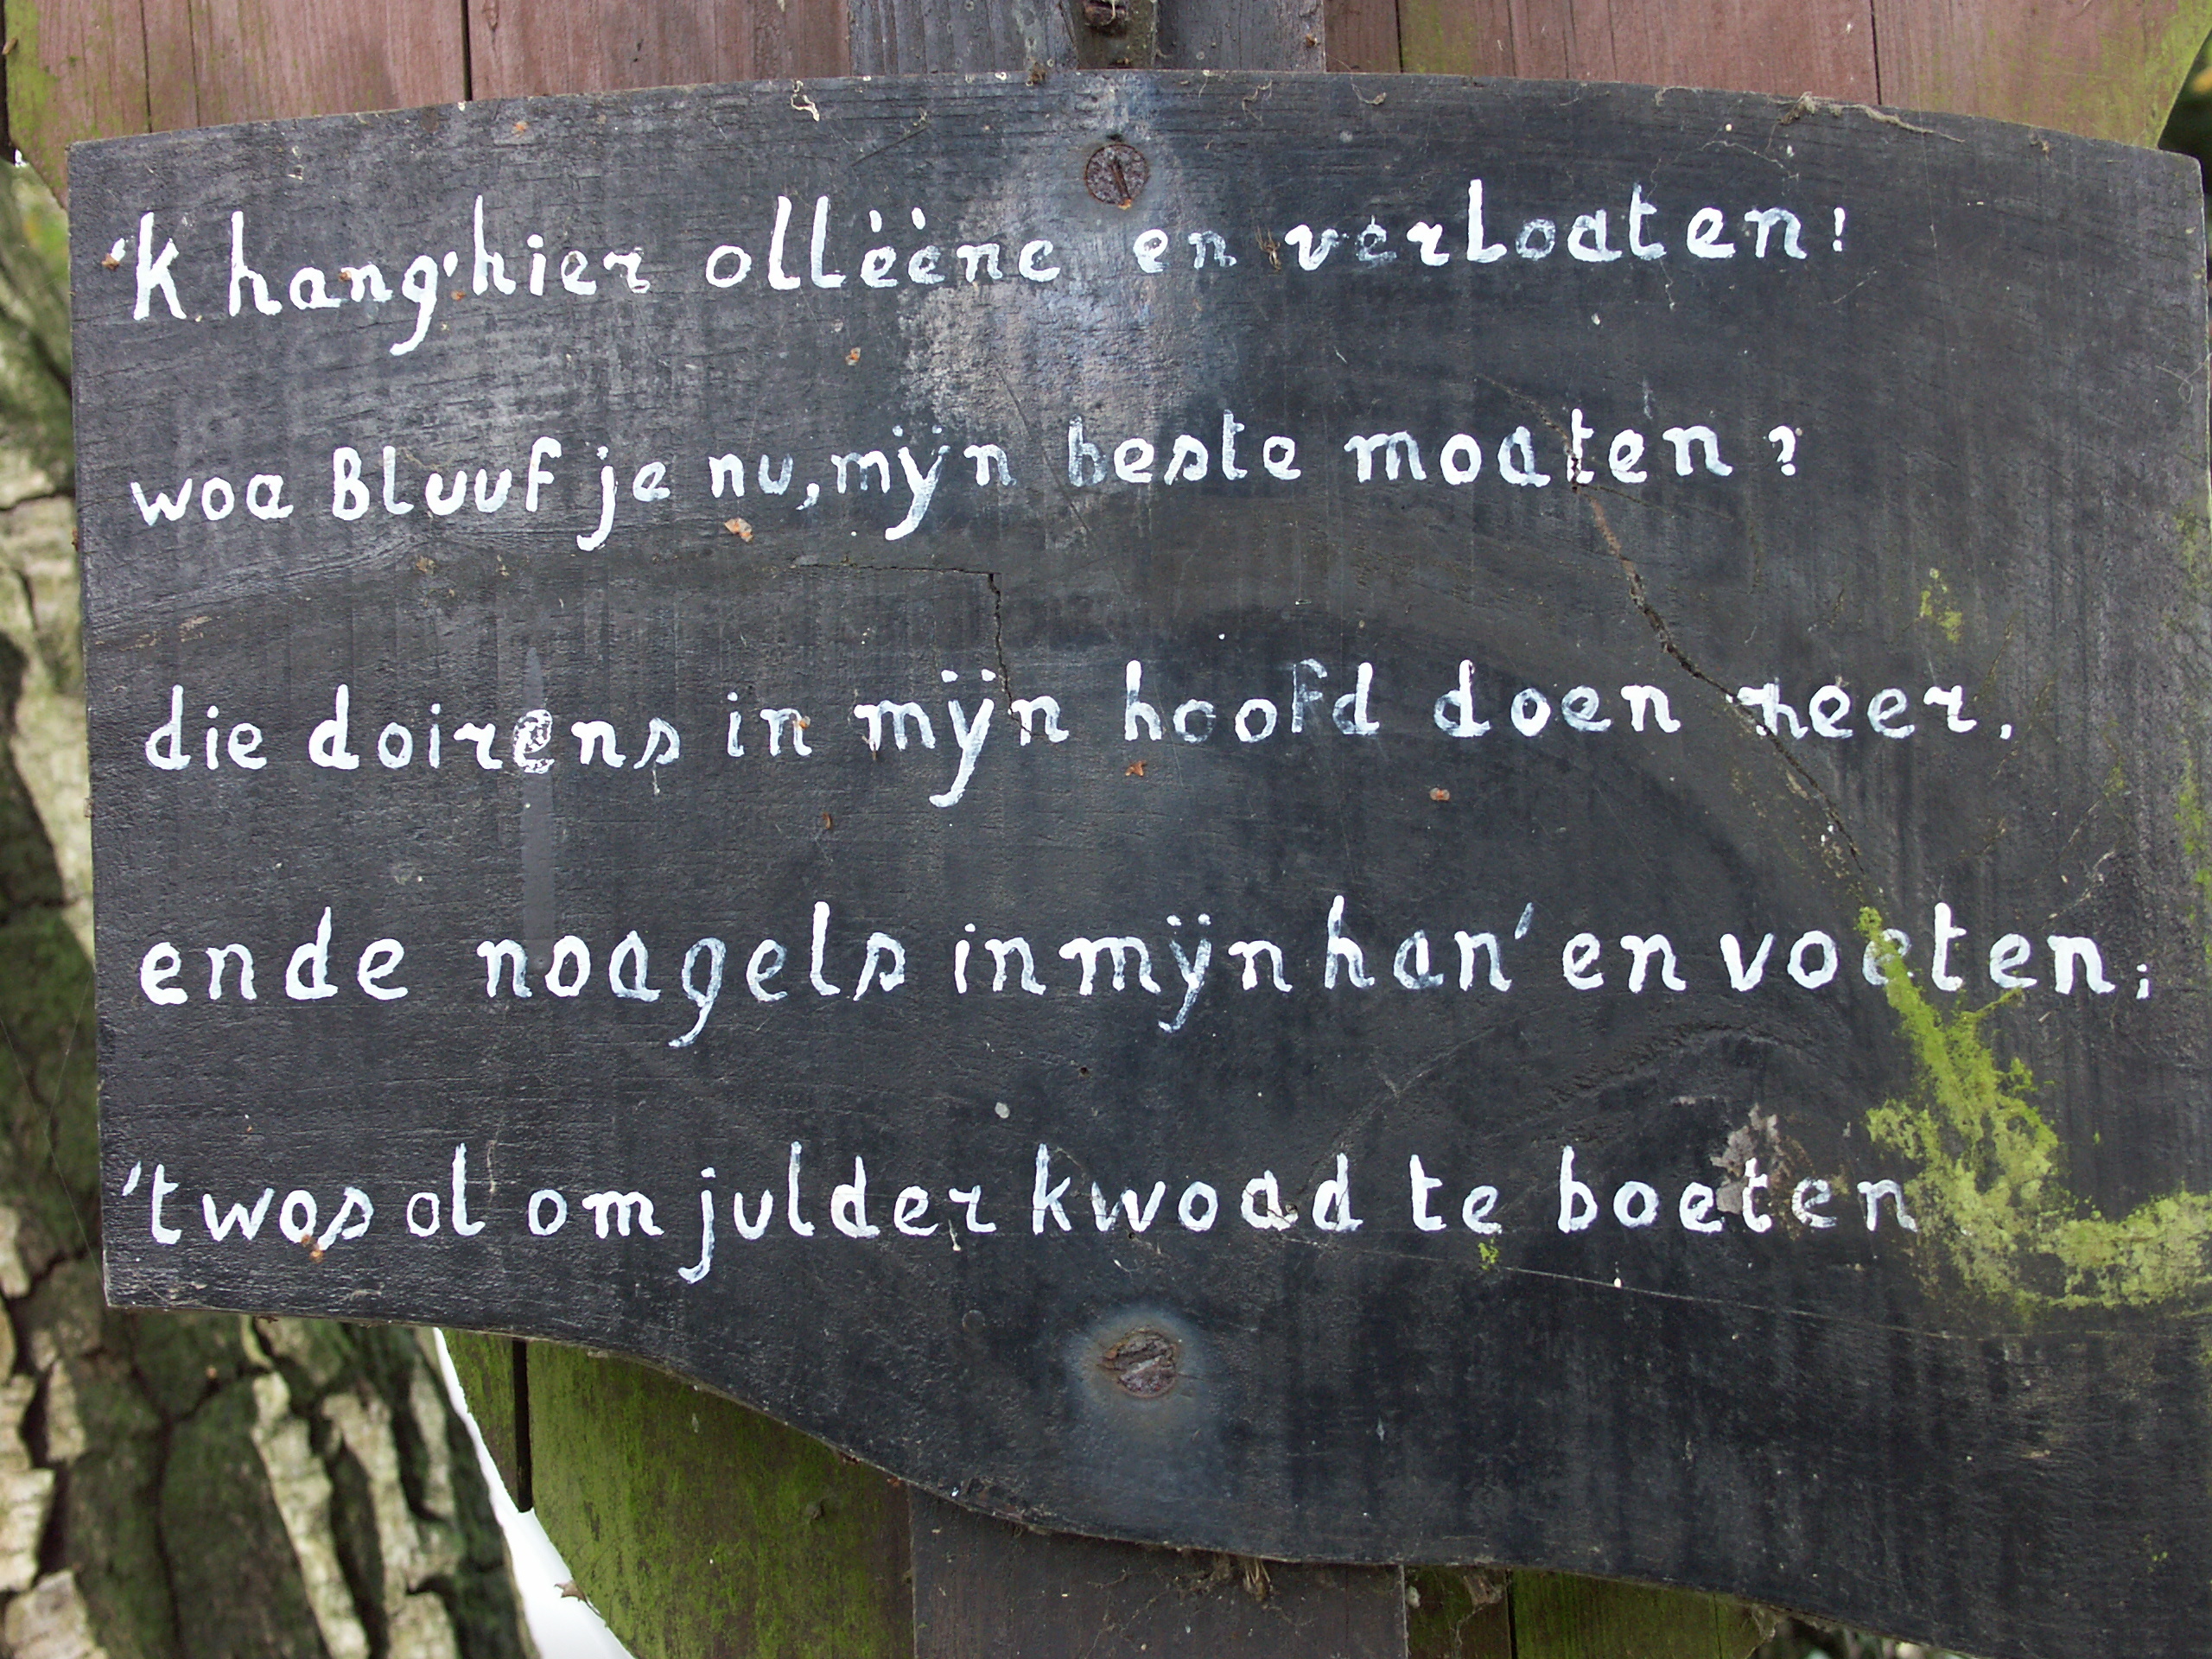 'K hang' hier ollèène en verloaten!
woa Bluuf je nu, mÿn beste moaten?
die doirens in mÿn hoofd doen zeer,
ende noagels in mÿn han' en voeten;
't wos ol om julder kwoad te boeten